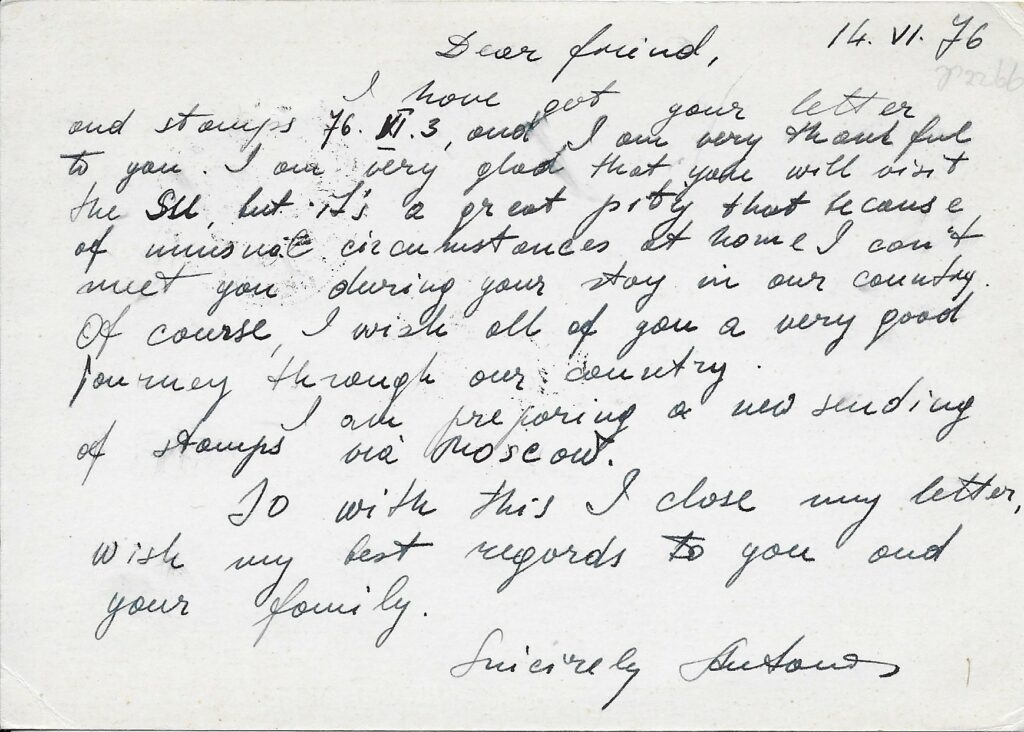 14. VI. 76
Dear friend,
I have got your letter
and stamps 76. VI. 3, and I am very thankful
to you. I am very glad that you will visit
the SU, but it's a great pity that because
of unusual circumstances at home I can't
meet you during your stay in our country.
Of course, I wish all of you a very good
journey through our country.
I am preparing a new sending
of stamps via Moscow.
So with this I close my letter,
wish my best regards to you and
your family.
Sincirely Antanas